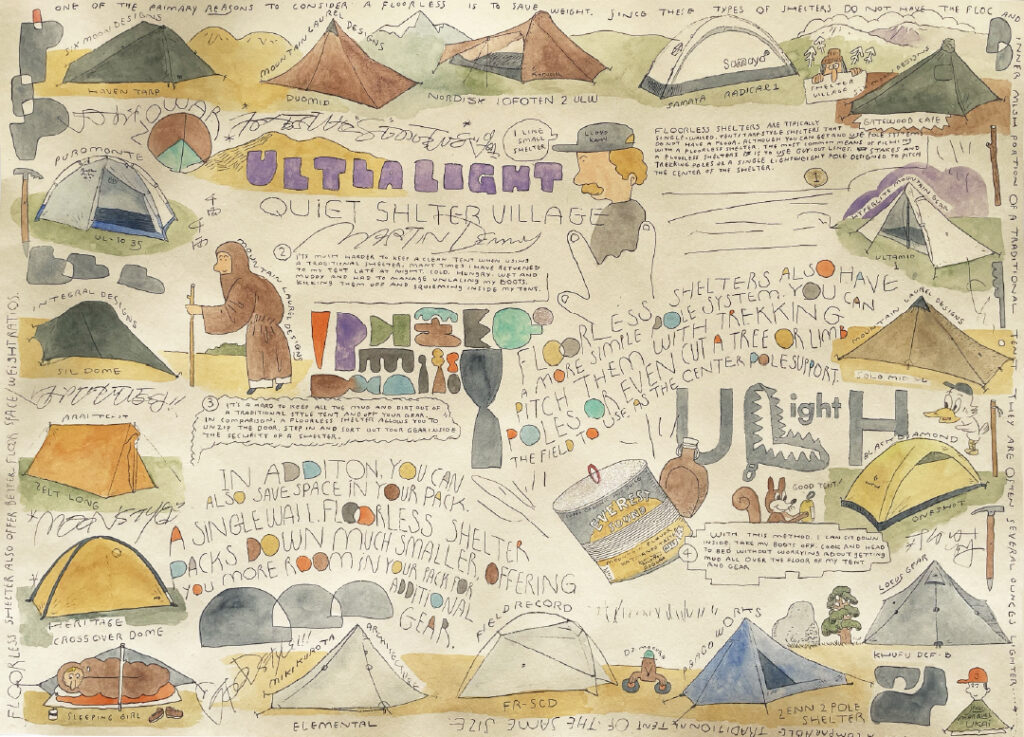 ONE OF THE PRIMARY REASONS TO CONSIDER A FLOORLESS IS TO SAVE WEIGHT. SINCE THESE TYPES OF SHELTERS DO NOT HAVE THE FLOO AND
INNER MESH POSITION OF A TRADITIONAL TENT THEY ARE OFTEN SEVERAL OUNCES LIGHTER
A COMPARABLE TRADITIONAL TENT OF THE SAME SIZE.
FLOORLESS SHELTER ALSO OFFER BETTER FLOOR SPACE/WEIGHT RATIOS.
SIX MOON DESIGNS
HAVEN TARP
MOUNTAIN LAUREL DESIGNS
DUOMID
NORDISK LOFOTEN 2 ULW
Samaya
SAMAYA RADICAL 1
SHELTER
VILLAGE
DESIGNS
GATEWOOD CAPE
PUROMONTE
UL-1035
I LIKE
SMALL
SHELTER
LLOYD
KAHN
FLOORLESS SHELTERS ARE TYPICALLY
SINGLE-WALLED, TENT/TARP-STYLE SHELTERS THAT
DO NOT HAVE A FLOOR. ALTHOUGH YOU CAN
WITH A FLOORLESS SHELTER, THE MOST COMMON MEANS OF PITCHING
A FLOORLESS SHELTERS IS TO USE GUY-OUT LINES, STAKES AND
TREKKING POLES OR A SINGLE LIGHTWEIGHT POLE DESIGNED TO PITCH
THE CENTER OF THE SHELTER.
1
ULTLALIGHT
QUIET SHLTER VILLAGE
MARTIN Denny
千
雨
千
雨
2
IT'S MUCH HARDER TO KEEP A CLEAN TENT WHEN USING
A TRADITIONAL SHELTER. MANY TIMES I HAVE RETURNED
TO MY TENT LATE AT NIGHT. COLD. HUNGRY. WET AND
MUDDY AND HAD TO MANAGE UNLACING MY BOOTS.
KICKING THEM OFF AND SQUIRMING INSIDE MY TENT.
MOUNTAIN LAUREL DESIGNS
HYPERLITE MOUNTAIN GEAR
ULTAMID
INTEGRAL DESIGNS
SIL DOME
FLOORLESS SHELTERS ALSO HAVE
A MORE SIMPLE POLE SYSTEM. YOU CAN
PITCH THEM WITH TREKKING
POLES OR EVEN CUT A TREE OR LIMB
THE FIELD TO USE AS THE CENTER POLE SUPPORT.
MOUNTAIN LAUREL DESIGNS
SOLO MID
3
IT'S A HARD TO KEEP ALL THE MUD AND DIRT OUT OF
A TRADITIONAL STYLE TENT AND OFF YOUR GEAR.
IN COMPARISON, A FLOORLESS SHELTER ALLOWS YOU TO
UNZIP THE DOOR, STEP IN AND SORT OUT YOUR GEAR INSIDE
THE SECURITY OF A SHELTER.
ULight H
ARAITENT
ZELT LONG
BLACK DIAMOND
ONESHOT
GOOD TENT!
IN ADDITON, YOU CAN
ALSO SAVE SPACE IN YOUR PACK.
A SINGLE WALL. FLOORLESS SHELTER
PACKS DOWN MUCH SMALLER, OFFERING
YOU MORE ROOM IN YOUR PACK FOR
ADDITIONAL
GEAR.
EVEREST
4
WITH THIS METHOD, I CAN SIT DOWN
INSIDE, TAKE MY BOOTS OFF, COOK AND HEAD
TO BED WITHOUT WORRYING ABOUT GETTING
MUD ALL OVER THE FLOOR OF MY TENT
AND GEAR
HERITAGE
CROSSOVER DOME
SLEEPING GIRL
MIKIKUROTA ARCHITECTURE
ELEMENTAL
FIELD RECORD
FR-SCD
PAAGOWORKS
ZENN 2 POLE
SHELTER
LOCUS GEAR
KHUFU DCF-B